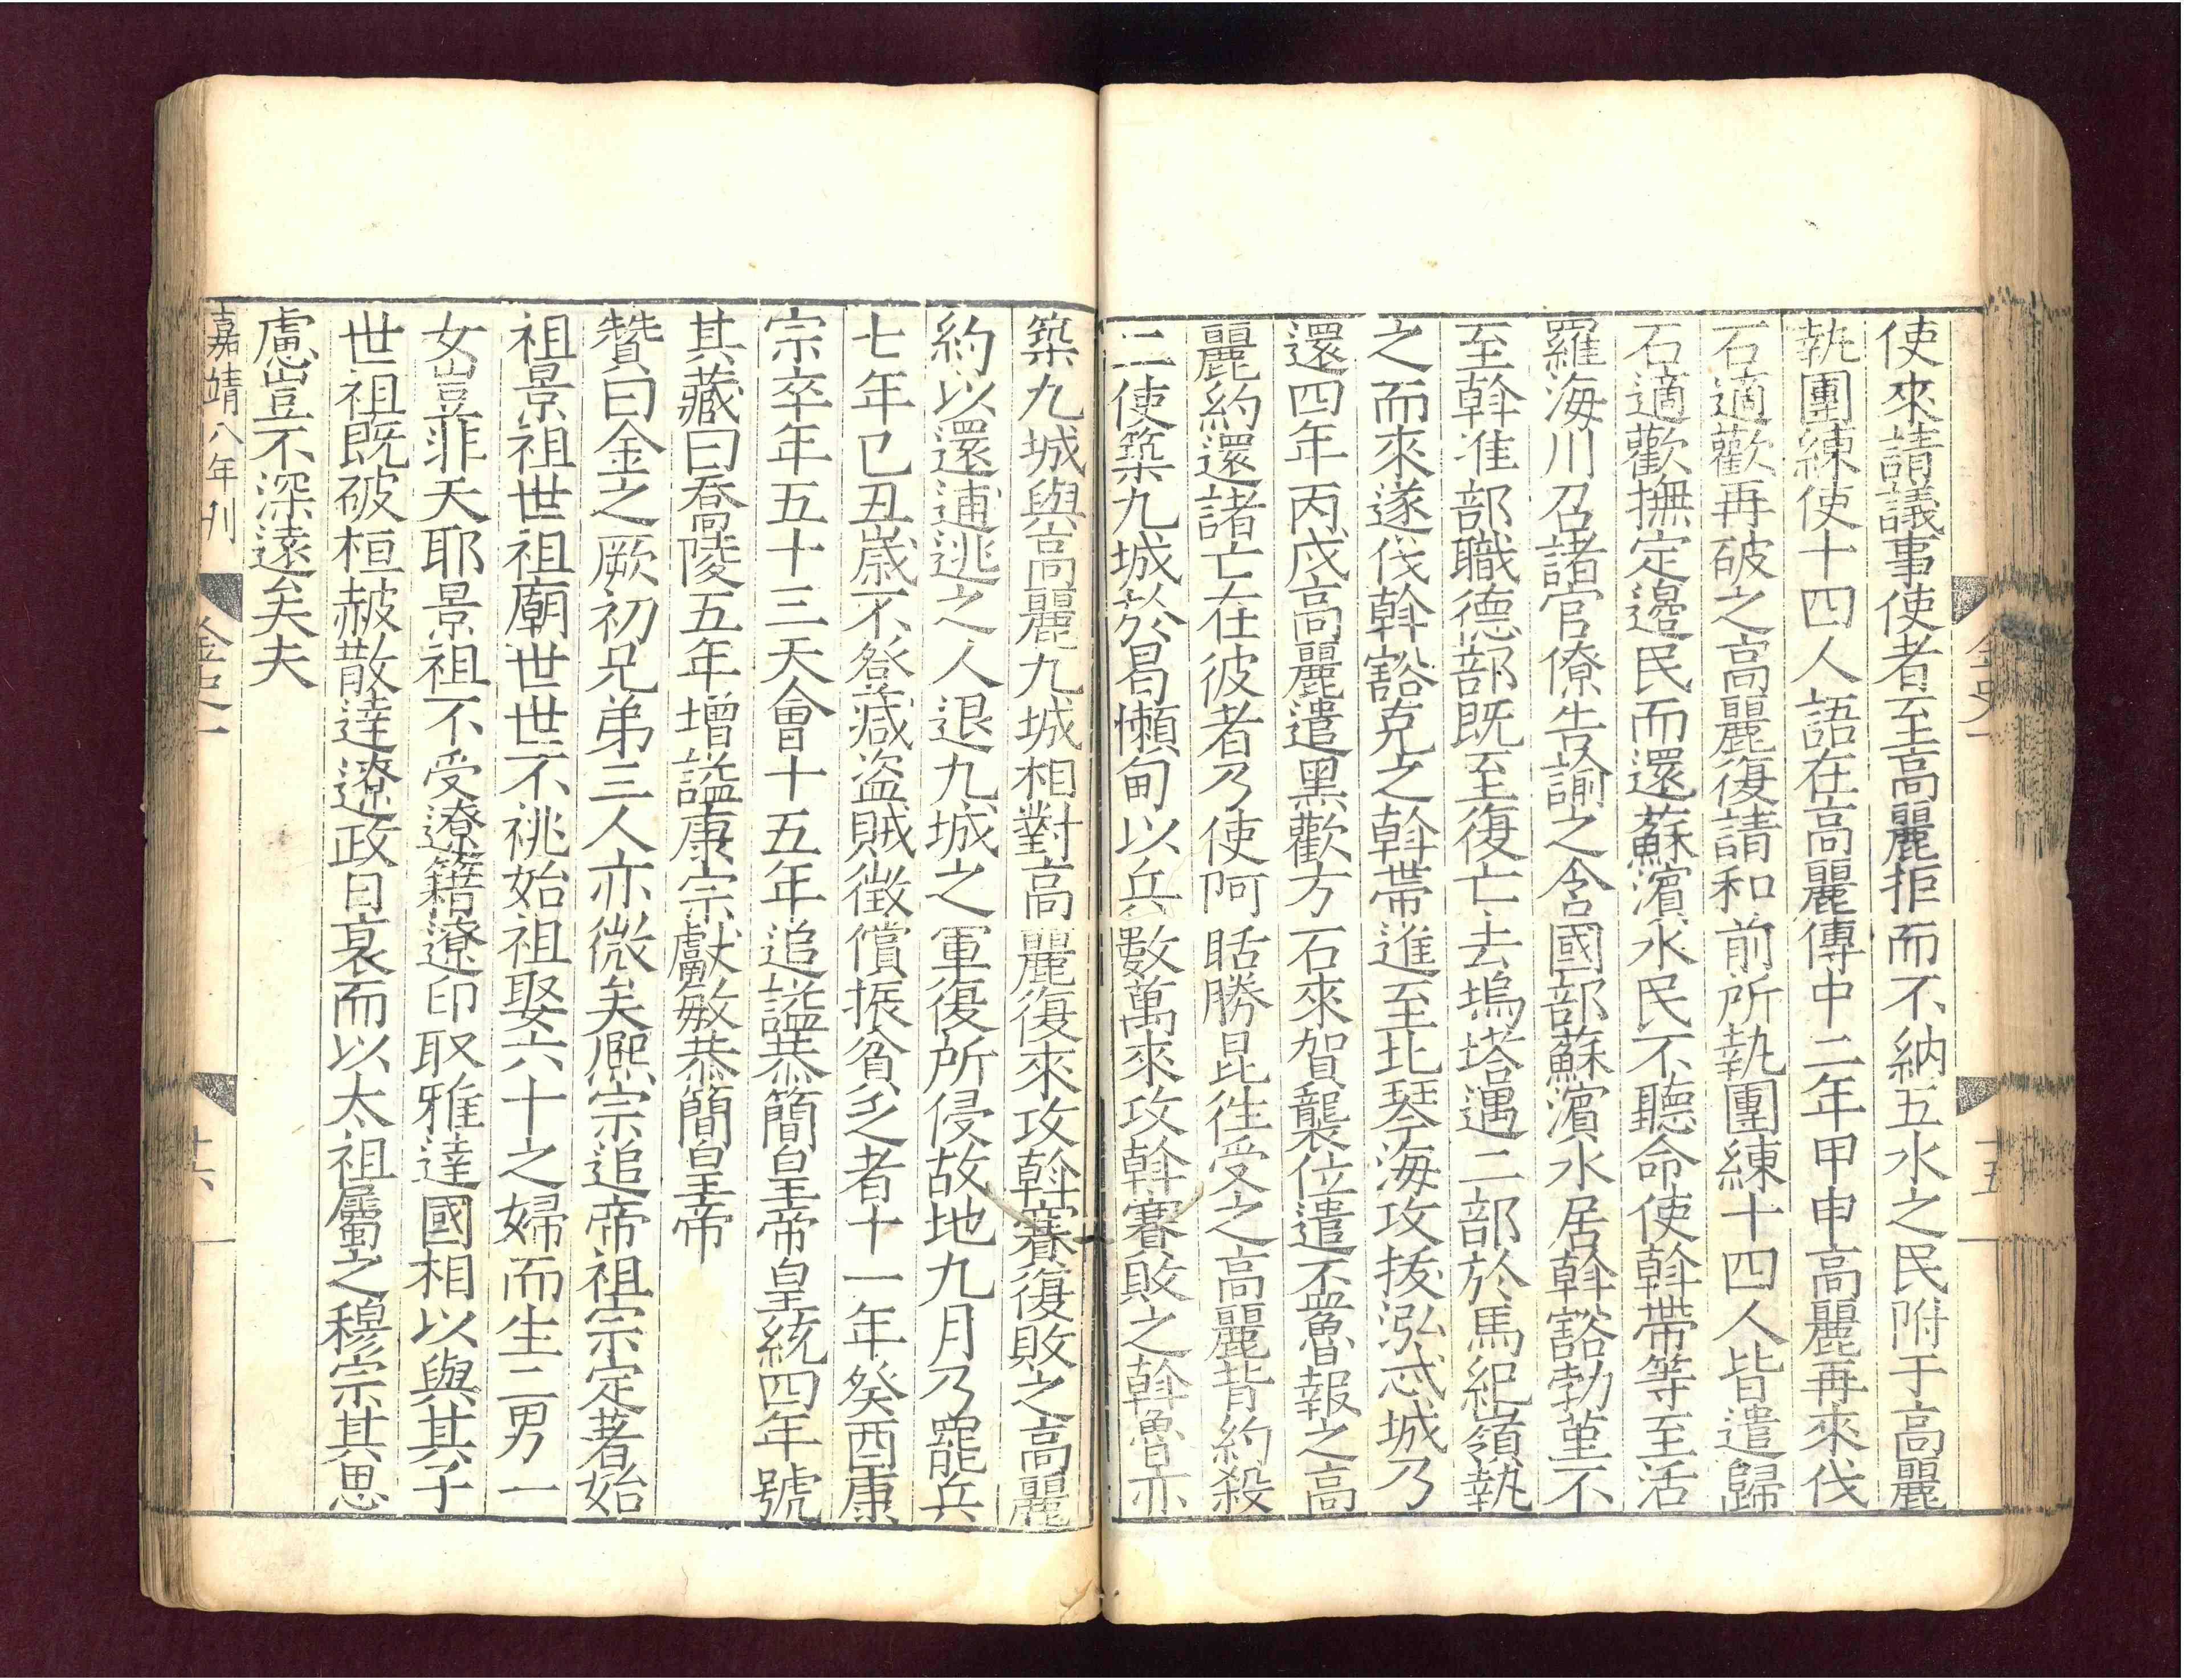 使來請議事使者至高麗拒而不納五水之民附于高麗
執團練使十四人語在高麗傳中二年甲申高麗再來伐
石適歡再破之高麗復請和前所執團練十四人皆遣歸
石適歡撫定邊民而還蘇濱水民不聽命使斡帶等至活
羅海川召諸官僚告諭之含國部蘇濱水居斡豁勃堇不
至斡准部職德部既至復亡去塢塔遇二部於馬紀嶺執
之而來遂伐斡豁克之斡帶進至北琴海攻拔泓忒城乃
還四年丙戌高麗遣黑歡方石來賀襲位遣盃魯報之高
麗約還諸亡在彼者乃使阿聒勝昆徃受之高麗背約殺
二使築九城於曷懶甸以兵數萬來攻斡賽敗之斡魯亦
築九城與高麗九城相對高麗復來攻斡賽復敗之高麗
約以還逋逃之人退九城之軍復所侵故地九月乃罷兵
七年己丑歲不登减盜賊徵償振貧乏者十一年癸酉康
宗卒年五十三天會十五年追謚恭簡皇帝皇統四年號
其藏曰喬陵五年增謚康宗獻敏恭簡皇帝
贊曰金之厥初兄弟三人亦微矣熈宗追帝祖宗定著始
祖景祖世祖廟世世不祧始祖娶六十之婦而生二男一
女豈非天耶景祖不受遼籍遼印取雅達國相以與其子
世祖既破桓赧散達遼政日衰而以太祖屬之穆宗其思
慮豈不深遠矣夫
嘉靖八年刊
金史一
十六
金史一
十五